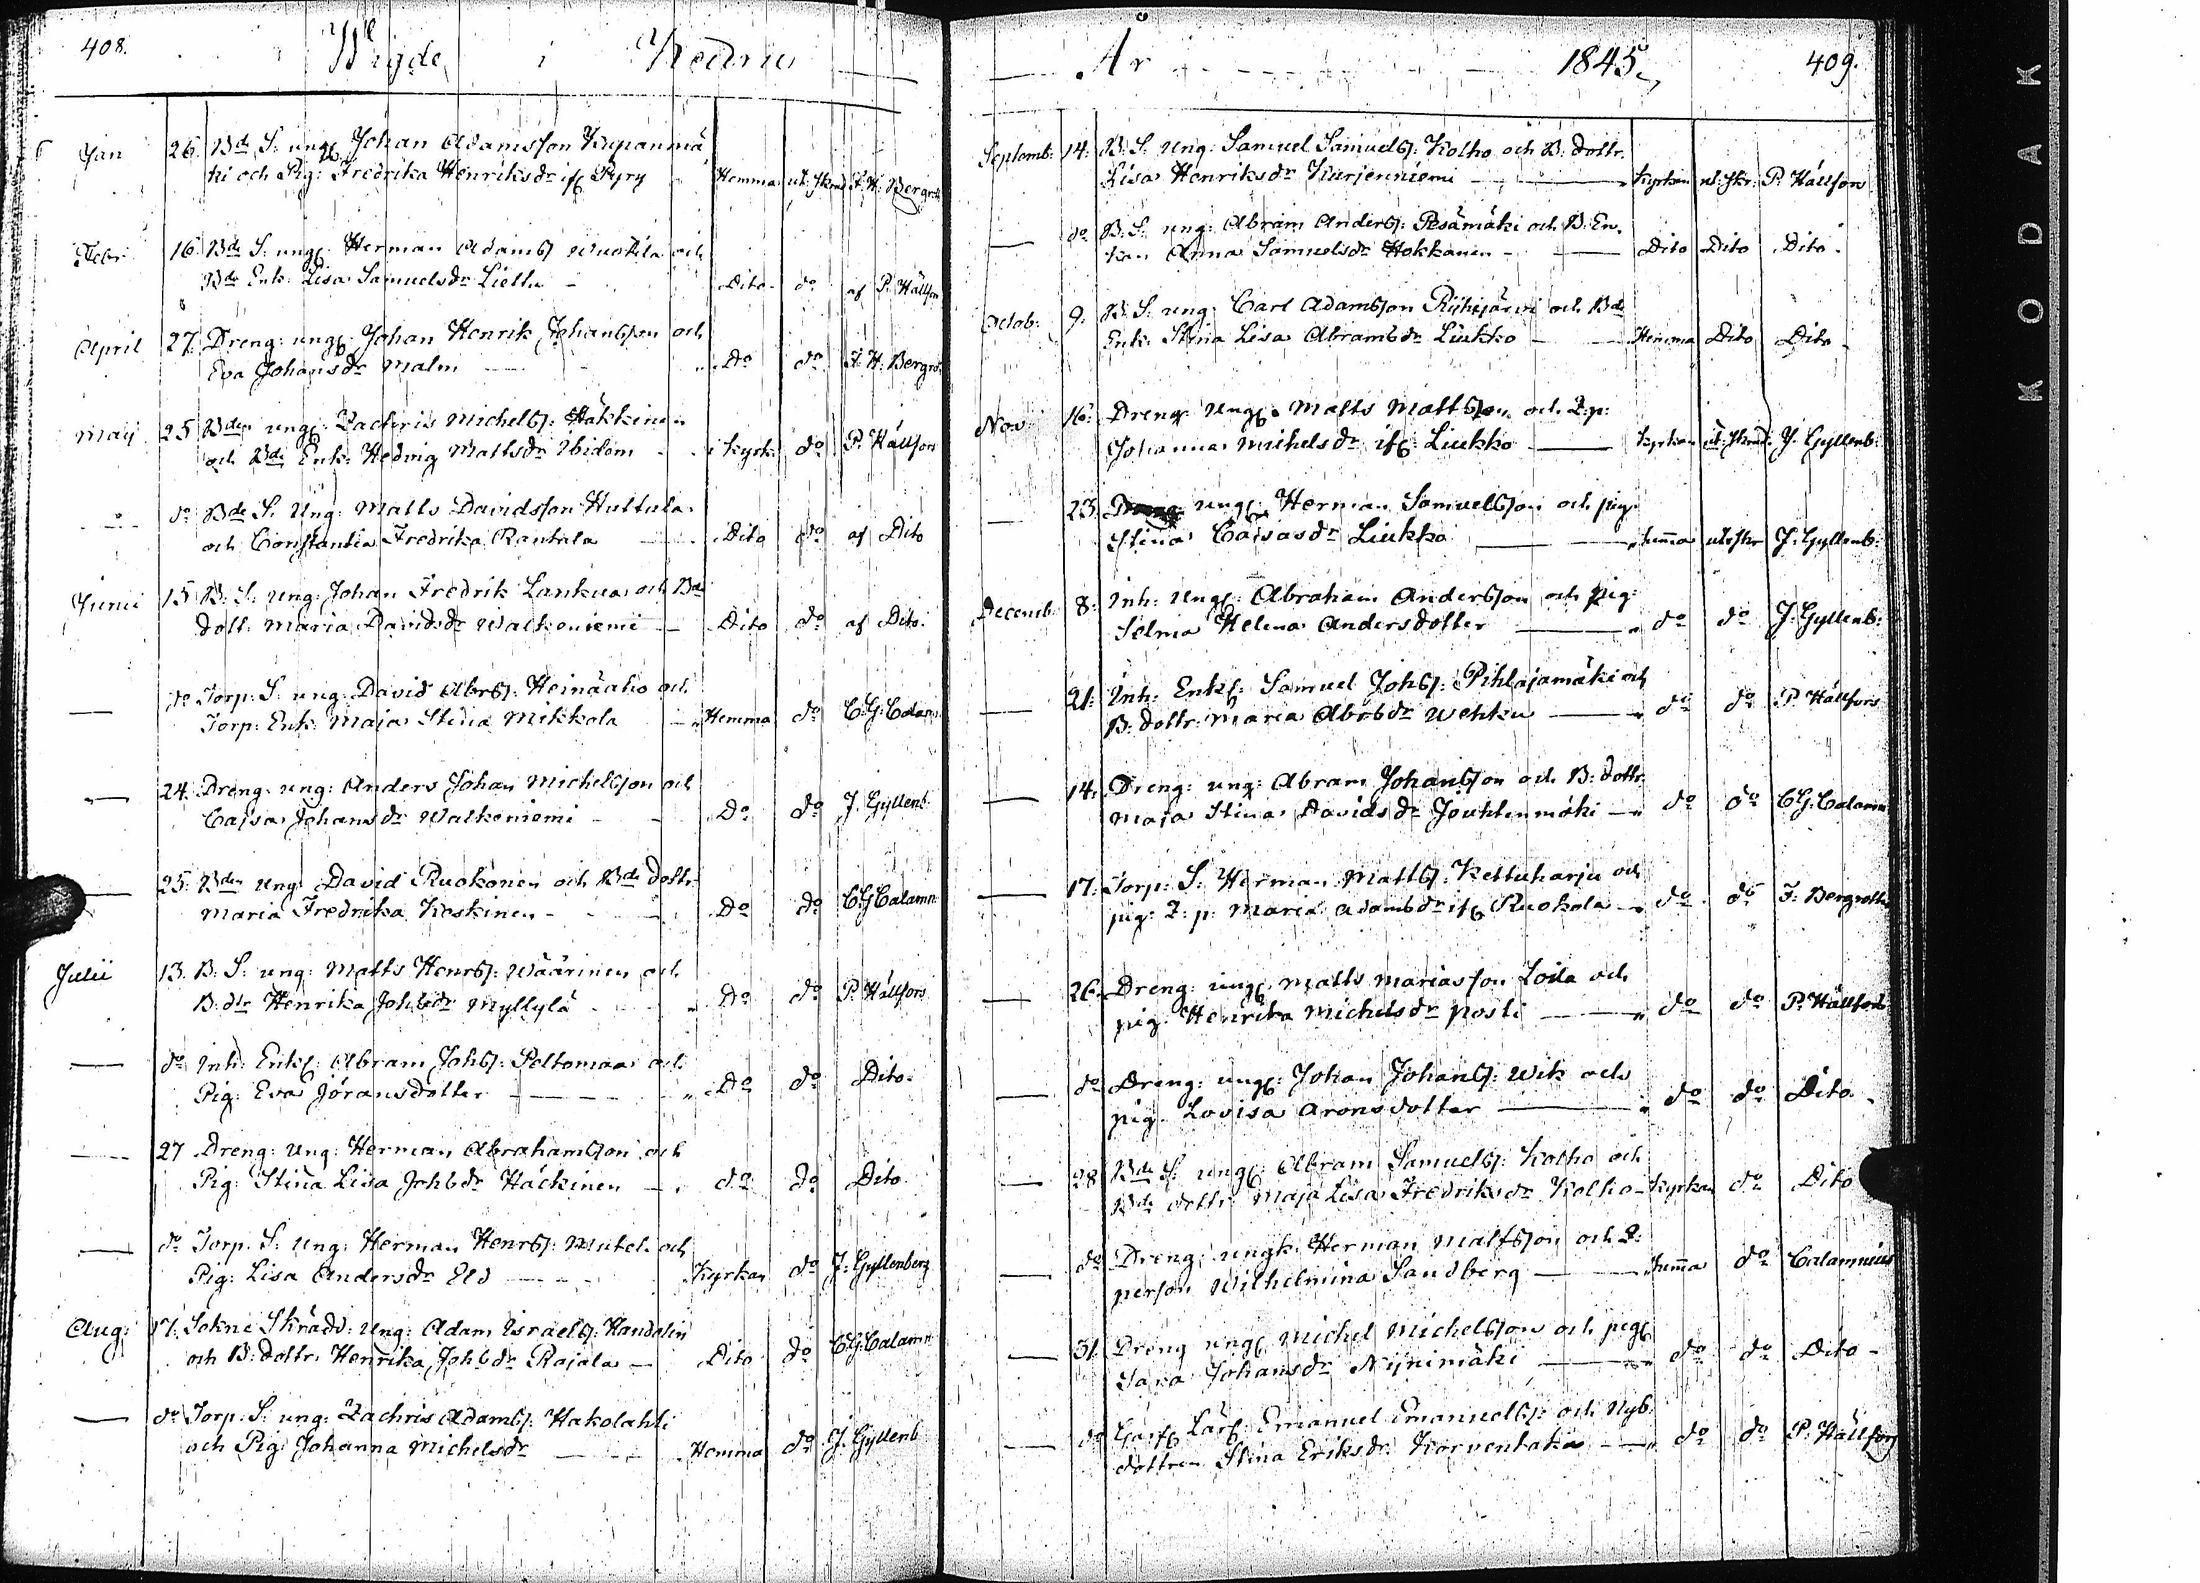 408.
Wigde i Kedne
Jan 26. Bde S: ungk Johan Adamsson Kupanmä
ki och Pig: Fredrika Henriksdr ifr Pyry Hemma ut: Skad F. H. Bergroth
Febr 16. Bde S: ungk Herman Adamss Wuokila och
Bde Enk: Lisa Samuelsdr Liettu Dito do af P. Hällfors
April 27. Dreng: ungk: Johan Henrik Johansson och
Eva Johansdr Malm Do do F. H. Bergroth
Maij 25 Bden ungk: Zachris Michelss: Häkkinen
och Bde Enk: Hedvig Mattsdr Ibidem i Kyrk: do P. Hällfors
do Bde S. Ung: Matts Davidsson Huttula
och Constantia Fredrika Rantala Dito do af Dito
Junii 15 B: S: ung: Johan Fredrik Lankua och Bde
Dott. Maria Davidsdr Walkeniemi Dito do af Dito.
do Torp: S. ung: David Abrss: Heinäaho och
Torp: Enk: Maja Stina Mikkola Hemma do C: G: Calamn
24. Dreng: ung: Anders Johan Michelsson och
Cajsa Johansdr Walkeniemi Do do J Gyllenb.
25. Bden Ung: David Ruokonen och Bde Dottr:
Maria Fredrika Koskinen Do do C: G Calamn
Julii 13. B: S: ung: Matts Henrss: Wäärinen och
B: dtr Henrika Johssdr Myllylä Do do P. Hällfors
do Inh: Enkl: Abram Johss: Peltomaa och
Pig: Eva Jöransdotter Do do Dito.
27 Dreng: Ung: Herman Abrahamsson och
Pig: Stina Lisa Johssdr Häckinen do do Dito
do Torp. S: Ung: Herman Henrss: och
Pig: Lisa Andersdr Eld Kyrkan do J: Gyllenberg
Aug: 17. Sokne Skrädd: Ung: Adam Israelss: Handolin
och B: dottr. Henrika Johssdr Rajala Dito do C: G: Calamn
do Torp. S: ung: Zachris Adamss: Hakolahti
och Pig: Johanna Michelsdr Hemma do J. Gyllenb
År 1845. 409.
Septemb: 14: B: S: Ung: Samuel Samuelss: Kolho och B: dottr.
Lisa Henriksdr Kurjenniemi Kyrkan ut: skr: P. Hällfors
do B: S: ung: Abram Anderss: Pesämäki och B: En
kan Anna Samuelsdr Hokkanen Dito Dito Dito.
Octob: 9. B: S: ung: Carl Adamsson Ryhijärvi och Bde
Enk: Stina Lisa Abramsdr Liukko Hemma Dito Dito
Nov: 16. Dreng: Ungk. Matts Mattsson och Q: p:
Johanna Mickelsdr ifr: Liukko Kyrkan ut: Skrad: J. Gyllenb:
23. Dreng: ungk: Herman Samuelsson och pig:
Stina Caisasdr Liukko hemma utskr J: Gyllenb:
Decemb: 8: Inh: Ungk: Abraham Andersson och Pig:
Selma Helena Andersdotter do do J: Gyllenb:
21. Inh: Enkl: Samuel Johss: Pihlajamäki och
B: dottr: Maria Abrssdr Wehku do do P. Hällfors
14. Dreng: ung: Abram Johansson och B: dottr.
Maja Stina Davidsdr Jouhtenmäki do do C G: Calamn
17. Torp: S: Herman Mattss: Kettuharju och
pig: Q: p: Maria Adamsdr ifr Ruokola do do F: Bergroth
26. Dreng: ungk. Matts Mariasson Loila och
pig. Henrika Michelsdr Posti do do P. Hällfors
do Dreng: ungk: Johan Johanss: Wik och
pig. Lovisa Aronsdotter do do Dito.
28 Bde S: ungk: Abram Samuelss: Kolho och
Bde dottr. Maja Lisa Fredriksdr Kolho Kyrkan do Dito
do Dreng: ungk: Herman Mattsson och Q:
person Wilhelmina Sandberg hemma do Calamnius
31. Dreng ungk Michel Michelsson och pigk
Sara Johansdr Nijnimäki do do Dito
do Emanuel Emanuelss: och Nyb:
dottren Stina Eriksdr: Korventaka do do P. Hällfors
KODAK